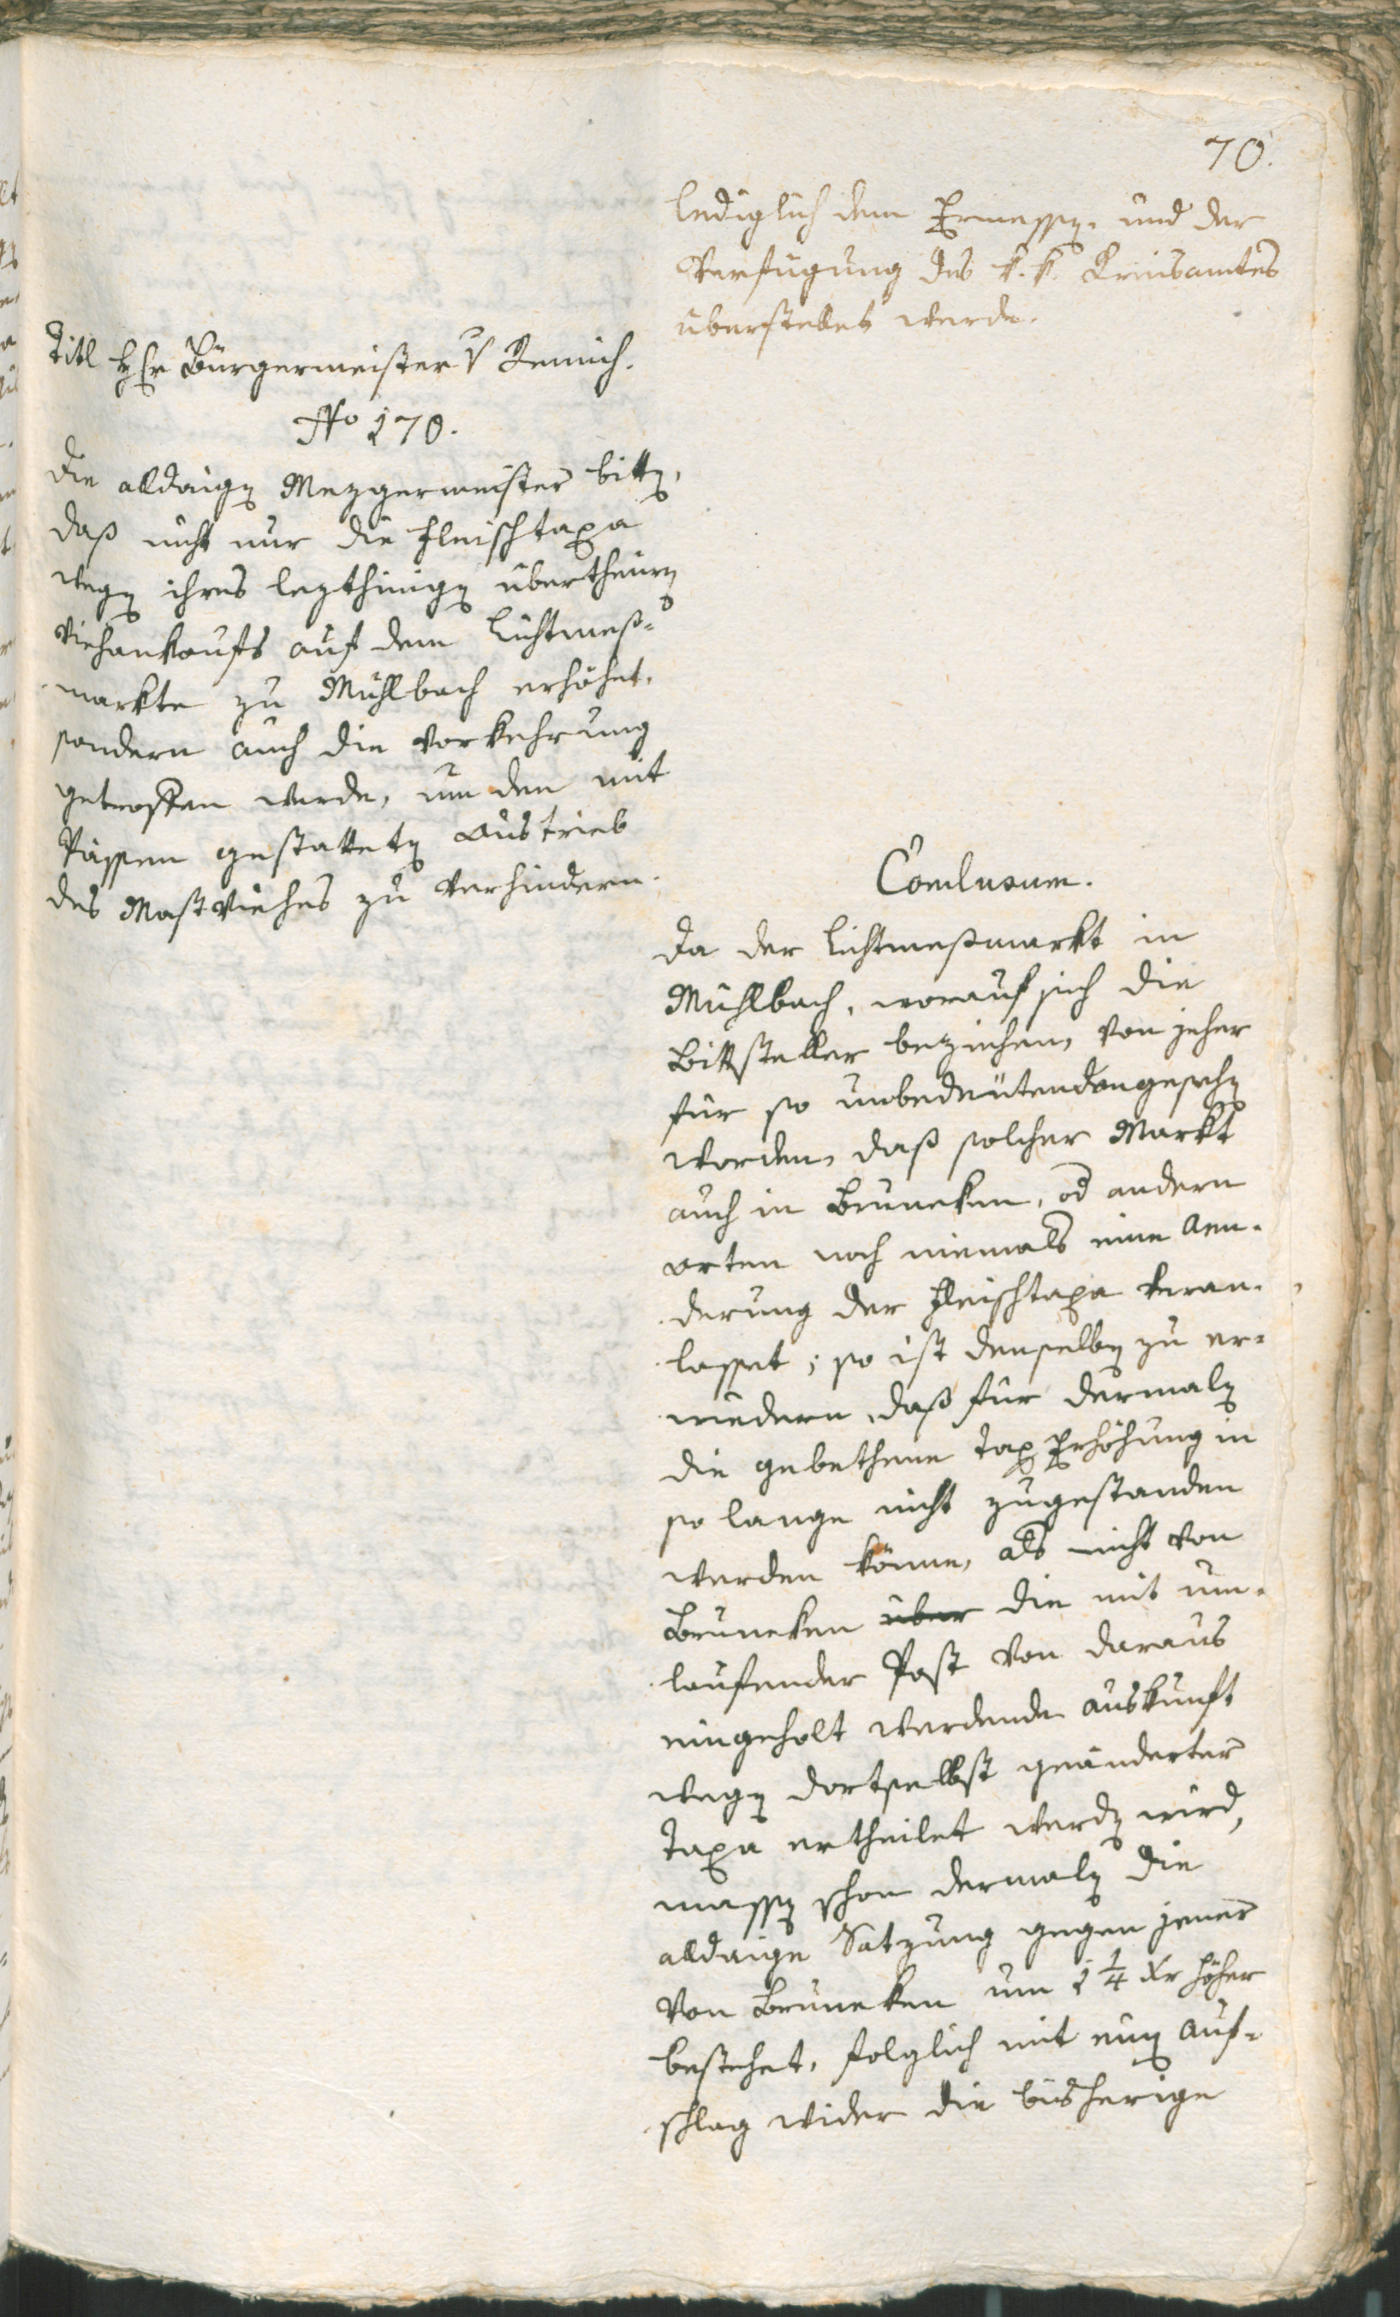 70.
lediglich dem Ermessen, und der
Verfügung des k. k. Kreisamtes
überstellet werde.
Titl Hr Bürgermeister v Remich.
No 170.
Die alldaigen Mezgermeister bitten,
daß nicht nur die Fleischtaxa
wegen ihres lezthinigen übertheuren
Viehankaufs auf dem Lichtmeß-
markte zu Mühlbach erhöhet,
sondern auch die Vorkehrung
getroffen werde, um den mit
Pässen gestatteten Austrieb
des Mastviehes zu verhindern.
Conclusum.
Da der Lichtmeßmarkt in
Mühlbach, worauf sich die
Bittsteller beziehen, von jeher
für so unbedeutend angesehen
worden, daß solcher Markt
auch in Bruneken, od andern
Orten noch niemals eine Aen-
derung der Fleischtaxa veran-
lasset; so ist denselben zu er-
wiedern, daß für dermalen
die gebethene Tax Erhöhung in
so lange nicht zugestanden
werden könne, als nicht von
Bruneken über die mit um-
laufender Post von daraus
eingeholt werdende Auskunft
wegen dortselbst geänderter
Taxa ertheilet werden wird,
massen schon dermalen die
alldaige Satzung gegen jener
von Bruneken um 1 1/4 Xr höher
bestehet, folglich mit einem Auf-
schlag wider die bisherige